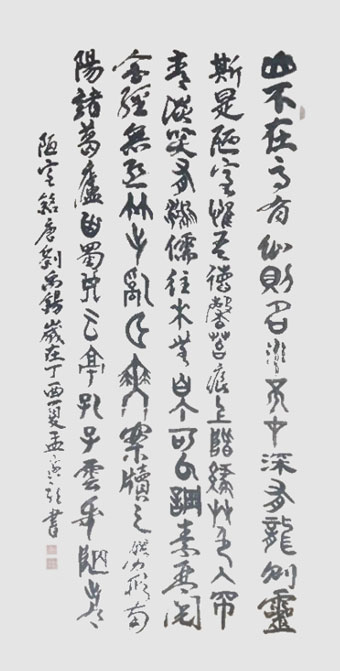 山不在高有仙則名水不在深有龍則靈
斯是陋室惟吾德馨苔痕上階綠艸色入帘
青談笑有鴻儒往來無白丁可以調素琴閱
金經無絲竹之亂耳無案牘之勞形南
陽諸葛廬西蜀子云亭孔子雲何陋之有
陋室銘唐劉禹錫歲在丁酉夏孟書